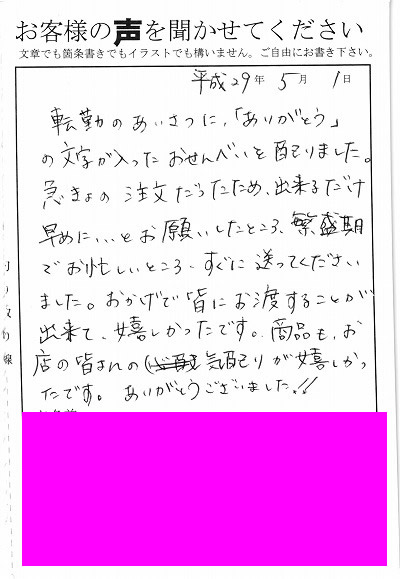 お客様の声を聞かせてください
文章でも箇条書きでもイラストでも構いません。ご自由にお書き下さい。
平成29年 5月 1日
転勤のあいさつに、「ありがとう」
の文字が入ったおせんべいを配りました。
急きょの注文だったため、出来るだけ
早めに…とお願いしたところ、繁盛期
でお忙しいところ、すぐに送ってください
ました。おかげで皆にお渡することが
出来て、嬉しかったです。商品も、お
店の皆さんの気配りが嬉しかっ
たです。ありがとうございました!!